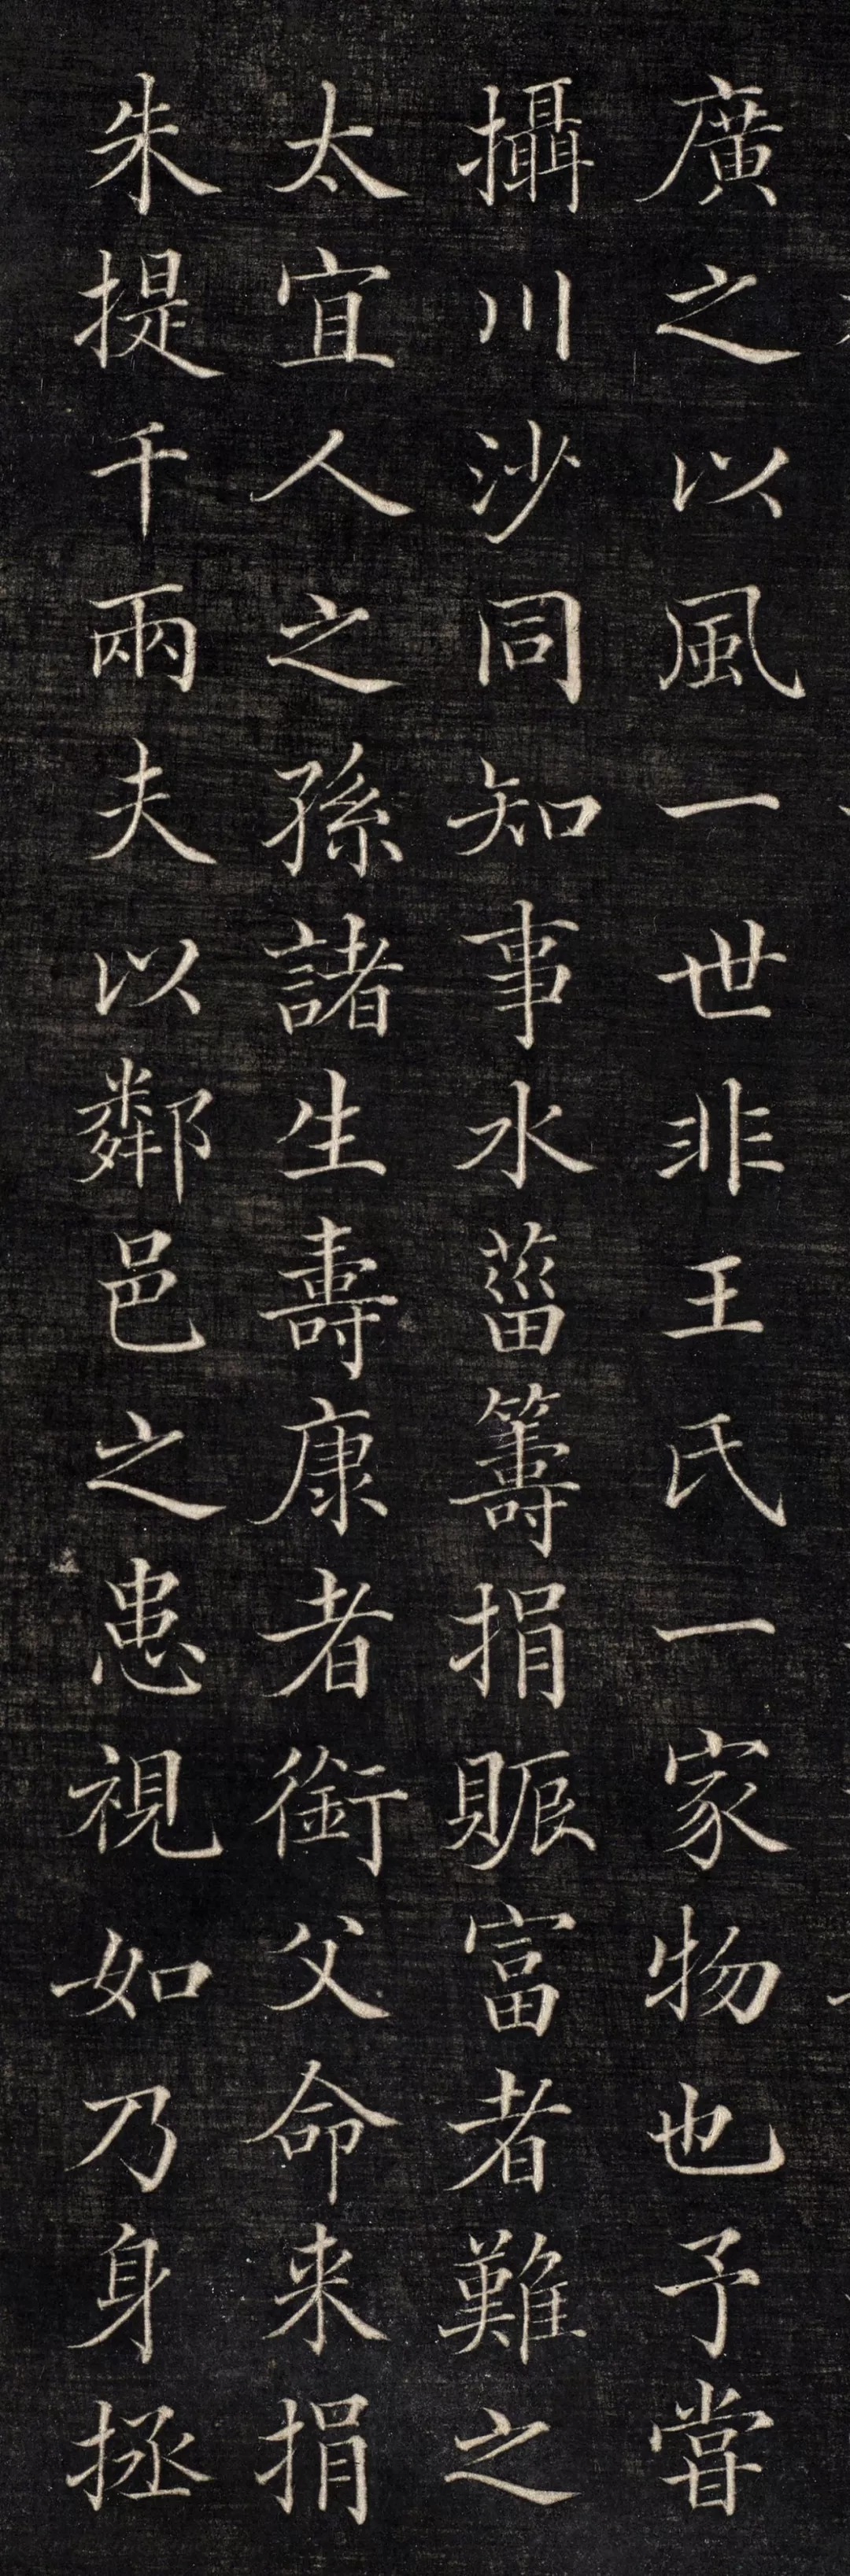 廣之以風一世非王氏一家物也予嘗
攝川沙同知事水菑籌捐賑富者難之
太宜人之孫諸生壽康者銜父命来捐
朱提千兩夫以鄰邑之患視如乃身拯